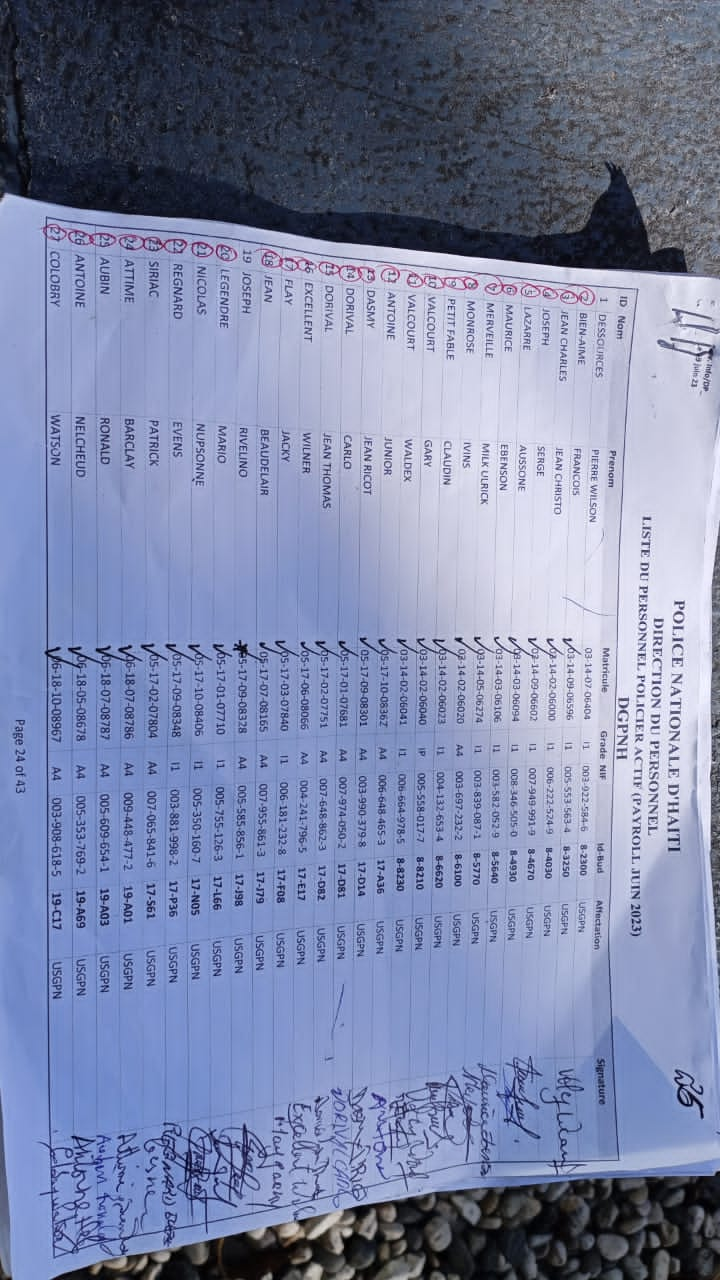 POLICE NATIONALE D'HAITI
DIRECTION DU PERSONNEL
LISTE DU PERSONNEL POLICIER ACTIF (PAYROLL JUIN 2023)
DGPNH
ID Nom Prenom Matricule Grade NIF Id-Bud Affectation Signature
1 DESSOURCES PIERRE WILSON 03-14-07-06404 I1 003-932-584-6 8-2300 USGPN
2 BIEN-AIME FRANCOIS 03-14-09-06596 I1 005-553-563-4 8-3250 USGPN
3 JEAN CHARLES JEAN CHRISTO 03-14-02-06000 I1 006-222-524-9 8-4030 USGPN
4 JOSEPH SERGE 03-14-09-06602 I1 007-949-991-9 8-4670 USGPN
5 LAZARRE AUSSONE 03-14-03-06094 I1 008-346-505-0 8-4930 USGPN
6 MAURICE EBENSON 03-14-03-06106 I1 003-582-052-9 8-5640 USGPN
7 MERVEILLE MILK ULRICK 03-14-05-06274 I1 003-839-087-1 8-5770 USGPN
8 MONROSE IVINS 03-14-02-06020 A4 003-697-232-2 8-6100 USGPN
9 PETIT FABLE CLAUDIN 03-14-02-06023 I1 004-132-653-4 8-6620 USGPN
10 VALCOURT GARY 03-14-02-06040 IP 005-558-017-7 8-8210 USGPN
11 VALCOURT WALDEX 03-14-02-06041 I1 006-664-978-5 8-8230 USGPN
ANTOINE JUNIOR 05-17-10-08362 A4 006-648-465-3 17-A36 USGPN
13 DASMY JEAN RICOT 05-17-09-08301 A4 003-990-379-8 17-D14 USGPN
14 DORIVAL CARLO 05-17-01-07681 A4 007-974-050-2 17-D81 USGPN
15 DORIVAL JEAN THOMAS 05-17-02-07751 A4 007-648-862-3 17-D82 USGPN
16 EXCELLENT WILNER 05-17-06-08066 A4 004-241-796-5 17-E17 USGPN
17 FLAY JACKY 05-17-03-07840 I1 006-181-232-8 17-F08 USGPN
18 JEAN BEAUDELAIR 05-17-07-08165 A4 007-955-861-3 17-J79 USGPN
19 JOSEPH RIVELINO 05-17-09-08328 A4 005-585-856-1 17-J98 USGPN
20 LEGENDRE MARIO 05-17-01-07710 I1 005-755-126-3 17-L66 USGPN
21 NICOLAS NUPSONNE 05-17-10-08406 I1 005-350-160-7 17-N05 USGPN
22 REGNARD EVENS 05-17-09-08348 I1 003-881-998-2 17-P36 USGPN
23 SIRIAC PATRICK 05-17-02-07804 A4 007-065-841-6 17-S61 USGPN
24 ATTIME BARCLAY 06-18-07-08786 A4 009-448-477-2 19-A01 USGPN
25 AUBIN RONALD 06-18-07-08787 A4 005-609-654-1 19-A03 USGPN
26 ANTOINE NELCHEUD 06-18-05-08678 A4 005-353-769-2 19-A69 USGPN
27 COLOBRY WATSON 06-18-10-08967 A4 003-908-618-5 19-C17 USGPN
Page 24 of 43